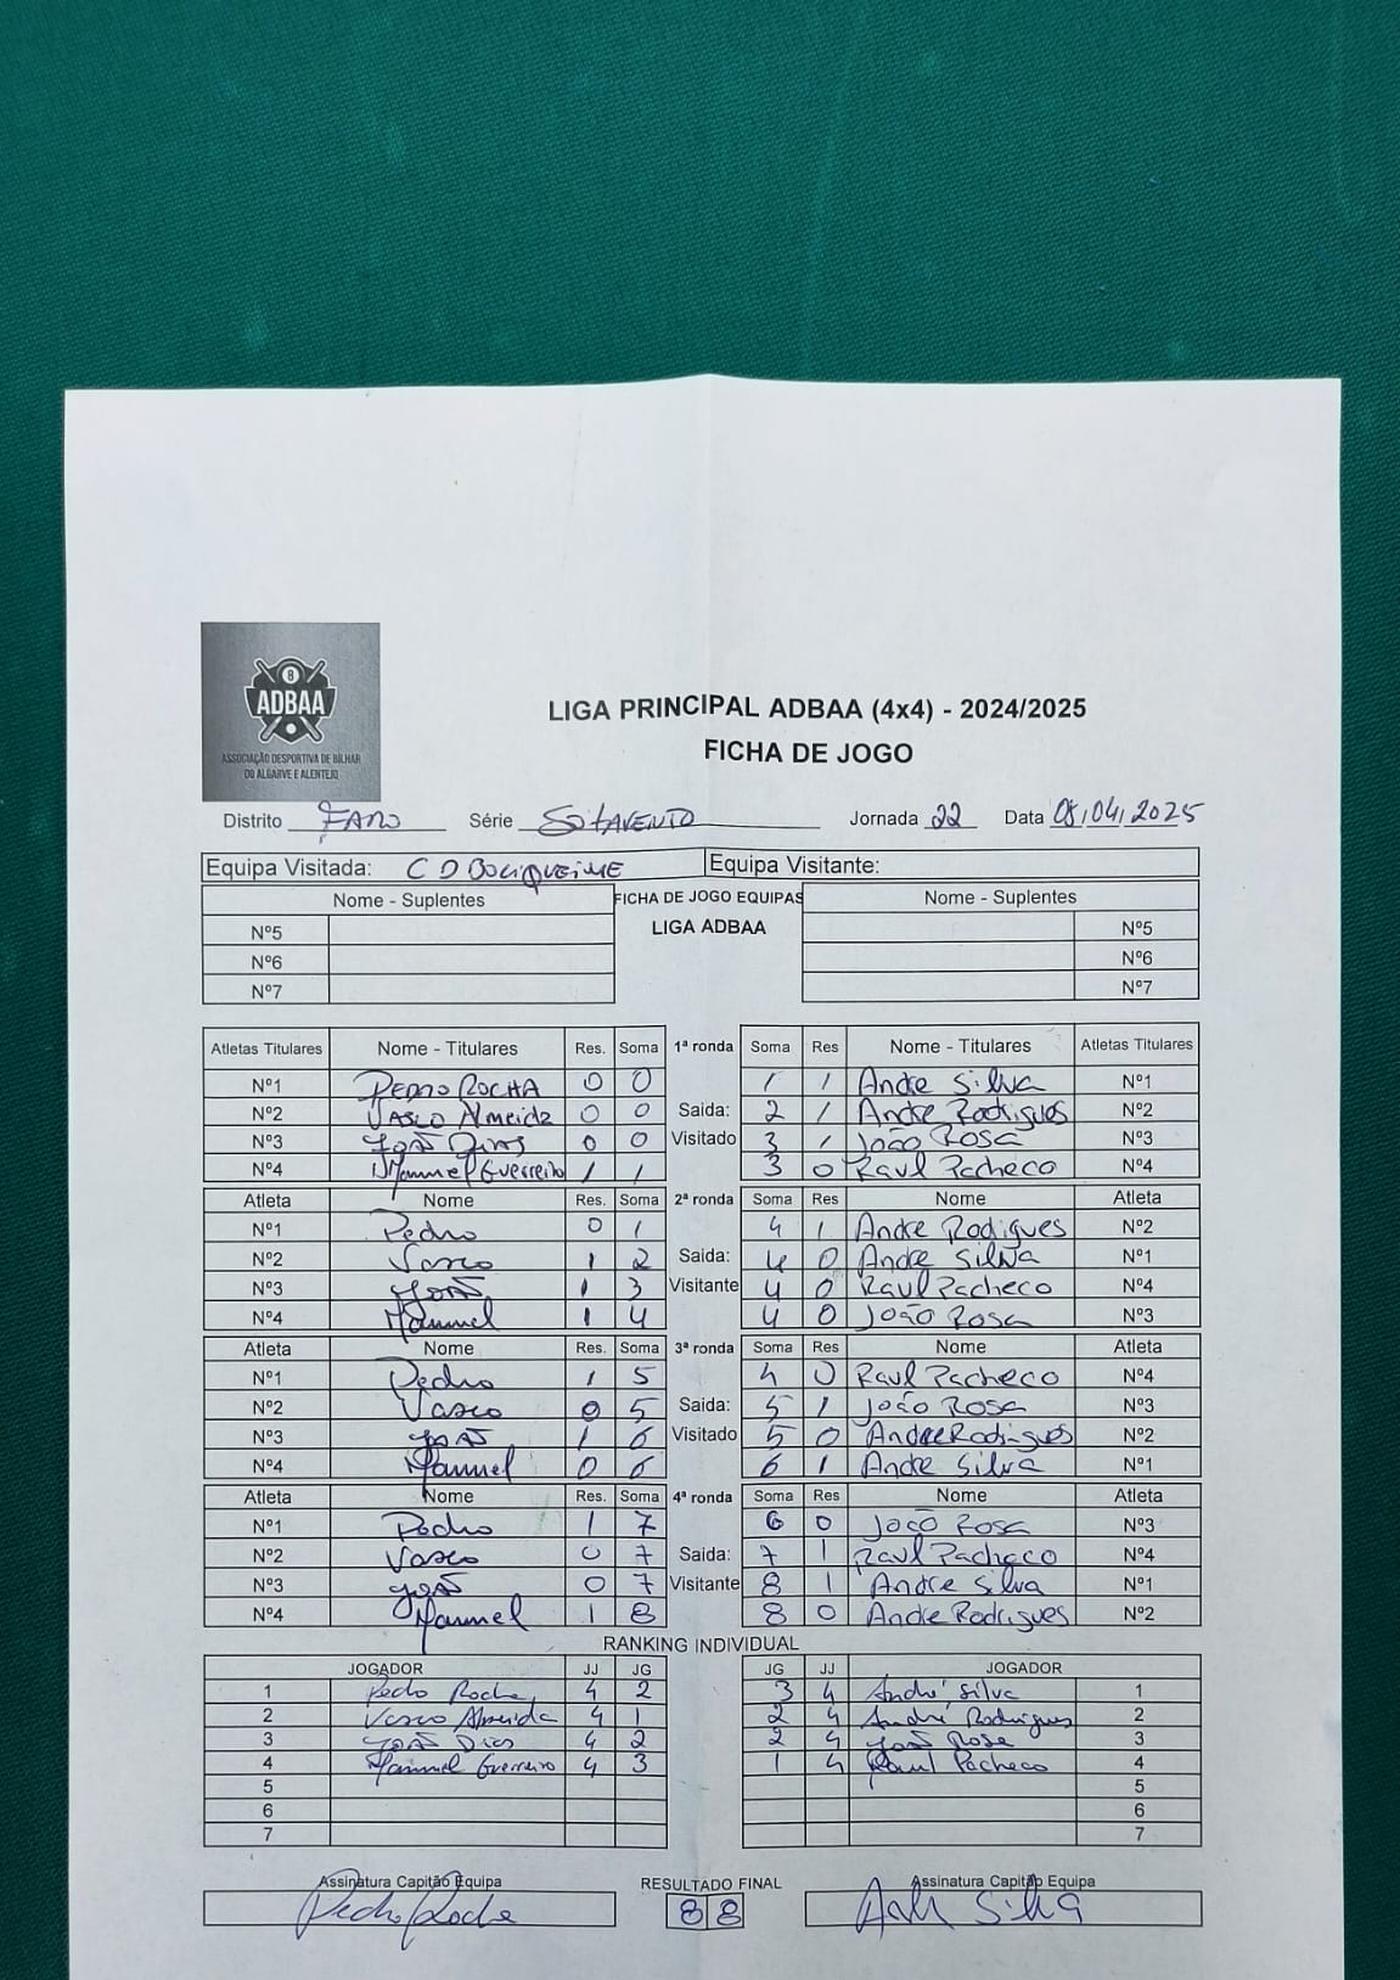 8
ADBAA
ASSOCIAÇÃO DESPORTIVA DE BILHAR
DO ALGARVE E ALENTEJO
LIGA PRINCIPAL ADBAA (4x4) - 2024/2025
FICHA DE JOGO
Distrito FARO Série SOTAVENTO Jornada 22 Data 08/04/2025
Equipa Visitada: C D BOLIQUEIME Equipa Visitante:
Nome - Suplentes FICHA DE JOGO EQUIPAS Nome - Suplentes
Nº5 LIGA ADBAA Nº5
Nº6 Nº6
Nº7 Nº7
Atletas Titulares Nome - Titulares Res. Soma 1ª ronda Soma Res Nome - Titulares Atletas Titulares
Nº1 PEDRO ROCHA 0 0 1 1 Andre Silva Nº1
Nº2 VASCO Almeida 0 0 Saida: 2 1 Andre Rodrigues Nº2
Nº3 JOÃO DIAS 0 0 Visitado 3 1 João Rosa Nº3
Nº4 Manuel Guerreiro 1 1 3 0 Raul Pacheco Nº4
Atleta Nome Res. Soma 2ª ronda Soma Res Nome Atleta
Nº1 Pedro 0 1 4 1 Andre Rodrigues Nº2
Nº2 Vasco 1 2 Saida: 4 0 Andre Silva Nº1
Nº3 JOÃO 1 3 Visitante 4 0 Raul Pacheco Nº4
Nº4 Manuel 1 4 4 0 João Rosa Nº3
Atleta Nome Res. Soma 3ª ronda Soma Res Nome Atleta
Nº1 Pedro 1 5 4 0 Raul Pacheco Nº4
Nº2 Vasco 0 5 Saida: 5 1 João Rosa Nº3
Nº3 JOÃO 1 6 Visitado 5 0 Andre Rodrigues Nº2
Nº4 Manuel 0 6 6 1 Andre Silva Nº1
Atleta Nome Res. Soma 4ª ronda Soma Res Nome Atleta
Nº1 Pedro 1 7 6 0 João Rosa Nº3
Nº2 Vasco 0 7 Saida: 7 1 Raul Pacheco Nº4
Nº3 JOÃO 0 7 Visitante 8 1 Andre Silva Nº1
Nº4 Manuel 1 8 8 0 Andre Rodrigues Nº2
RANKING INDIVIDUAL
JOGADOR JJ JG JG JJ JOGADOR
1 Pedro Rocha 4 2 3 4 André Silva 1
2 Vasco Almeida 4 1 2 4 André Rodrigues 2
3 JOÃO Dias 4 2 2 4 João Rosa 3
4 Manuel Guerreiro 4 3 1 4 Raul Pacheco 4
5 5
6 6
7 7
Assinatura Capitão Equipa RESULTADO FINAL Assinatura Capitão Equipa
Pedro Rocha 8 8 André Silva